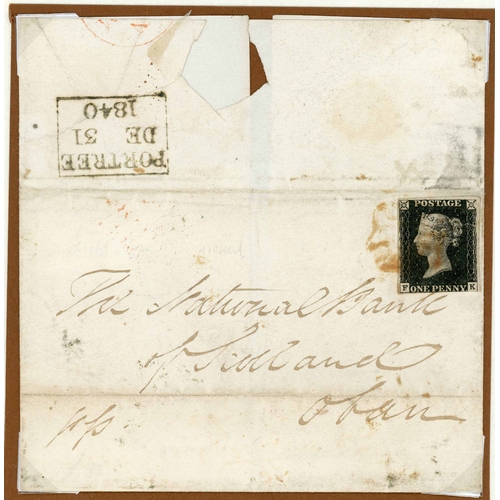 PORTREE
DE 31
1840
POSTAGE
F K
ONE PENNY
The National Bank
of Scotland
Oban